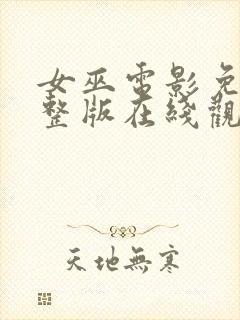 女巫電影免
整版在綫觀
天地無寒